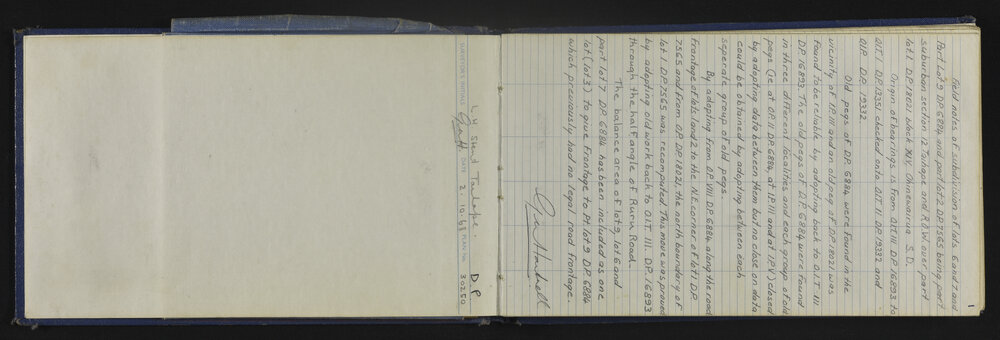 L H Stent Taulake.
D P
SURVEYOR'S INITIALS DATE 2.10.68 PLAN No. 30250
1
Field notes of subdivision of lots 6 and 7, and
Part Lot 9 DP. 6884 and part lot 2 DP. 7565 being part
suburban section 12 Tahape and R.O.W. over part
lot 1 DP. 18021 block XIV, Ohinewairua S.D.
Origin of bearings is from O.I.T. III DP. 16893 to
O.I.T. I DP. 13351 checked onto O.I.T. II DP. 19332 and
O.I.P. DP. 19332.
Old pegs of DP. 6884 were found in the
vicinity of I.P. III and an old peg of DP. 18021 was
found to be reliable by adopting back to O.I.T. III
DP. 16893. The old pegs of DP. 6884 were found
in three different localities and each group of old
pegs (ie at OP. II DP. 6884, at I.P. III and at I.P. V) closed
by adopting data between them but no close on data
could be obtained by adopting between each
seperate group of old pegs.
By adopting from OP. VIII DP. 6884 along the road
frontage of lots 1 and 2 to the N.E. corner of lot 1 DP.
7565 and from OP. DP. 18021, the north boundary of
lot 1 DP. 7565 was recomputed. This move was proved
by adopting old work back to O.I.T. III. DP. 16893
through the half angle of Ruru Road.
The balance area of lot 9, lot 6 and
part lot 7 DP. 6884 has been included as one
lot (lot 3) to give frontage to Pt. lot 9 DP. 6884
which previously had no legal road frontage.